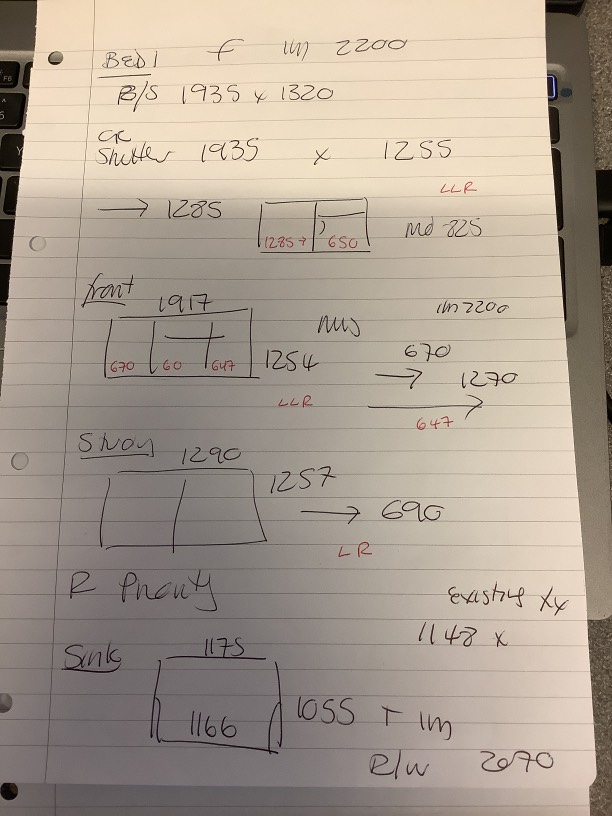 BED1 f 1m 2200
B/S 1935 x 1320
Shutter 1935 x 1255
LLR
→ 1285
1285 → 650
Md 825
front 1917
1m 2200
670 60 647 1254
670
→ 1270
LLR
647
Study 1290
1257
→ 690
LR
R Priority
existing
1148 x
Sink 1175
1166 1055 T 1m
R/W 2070